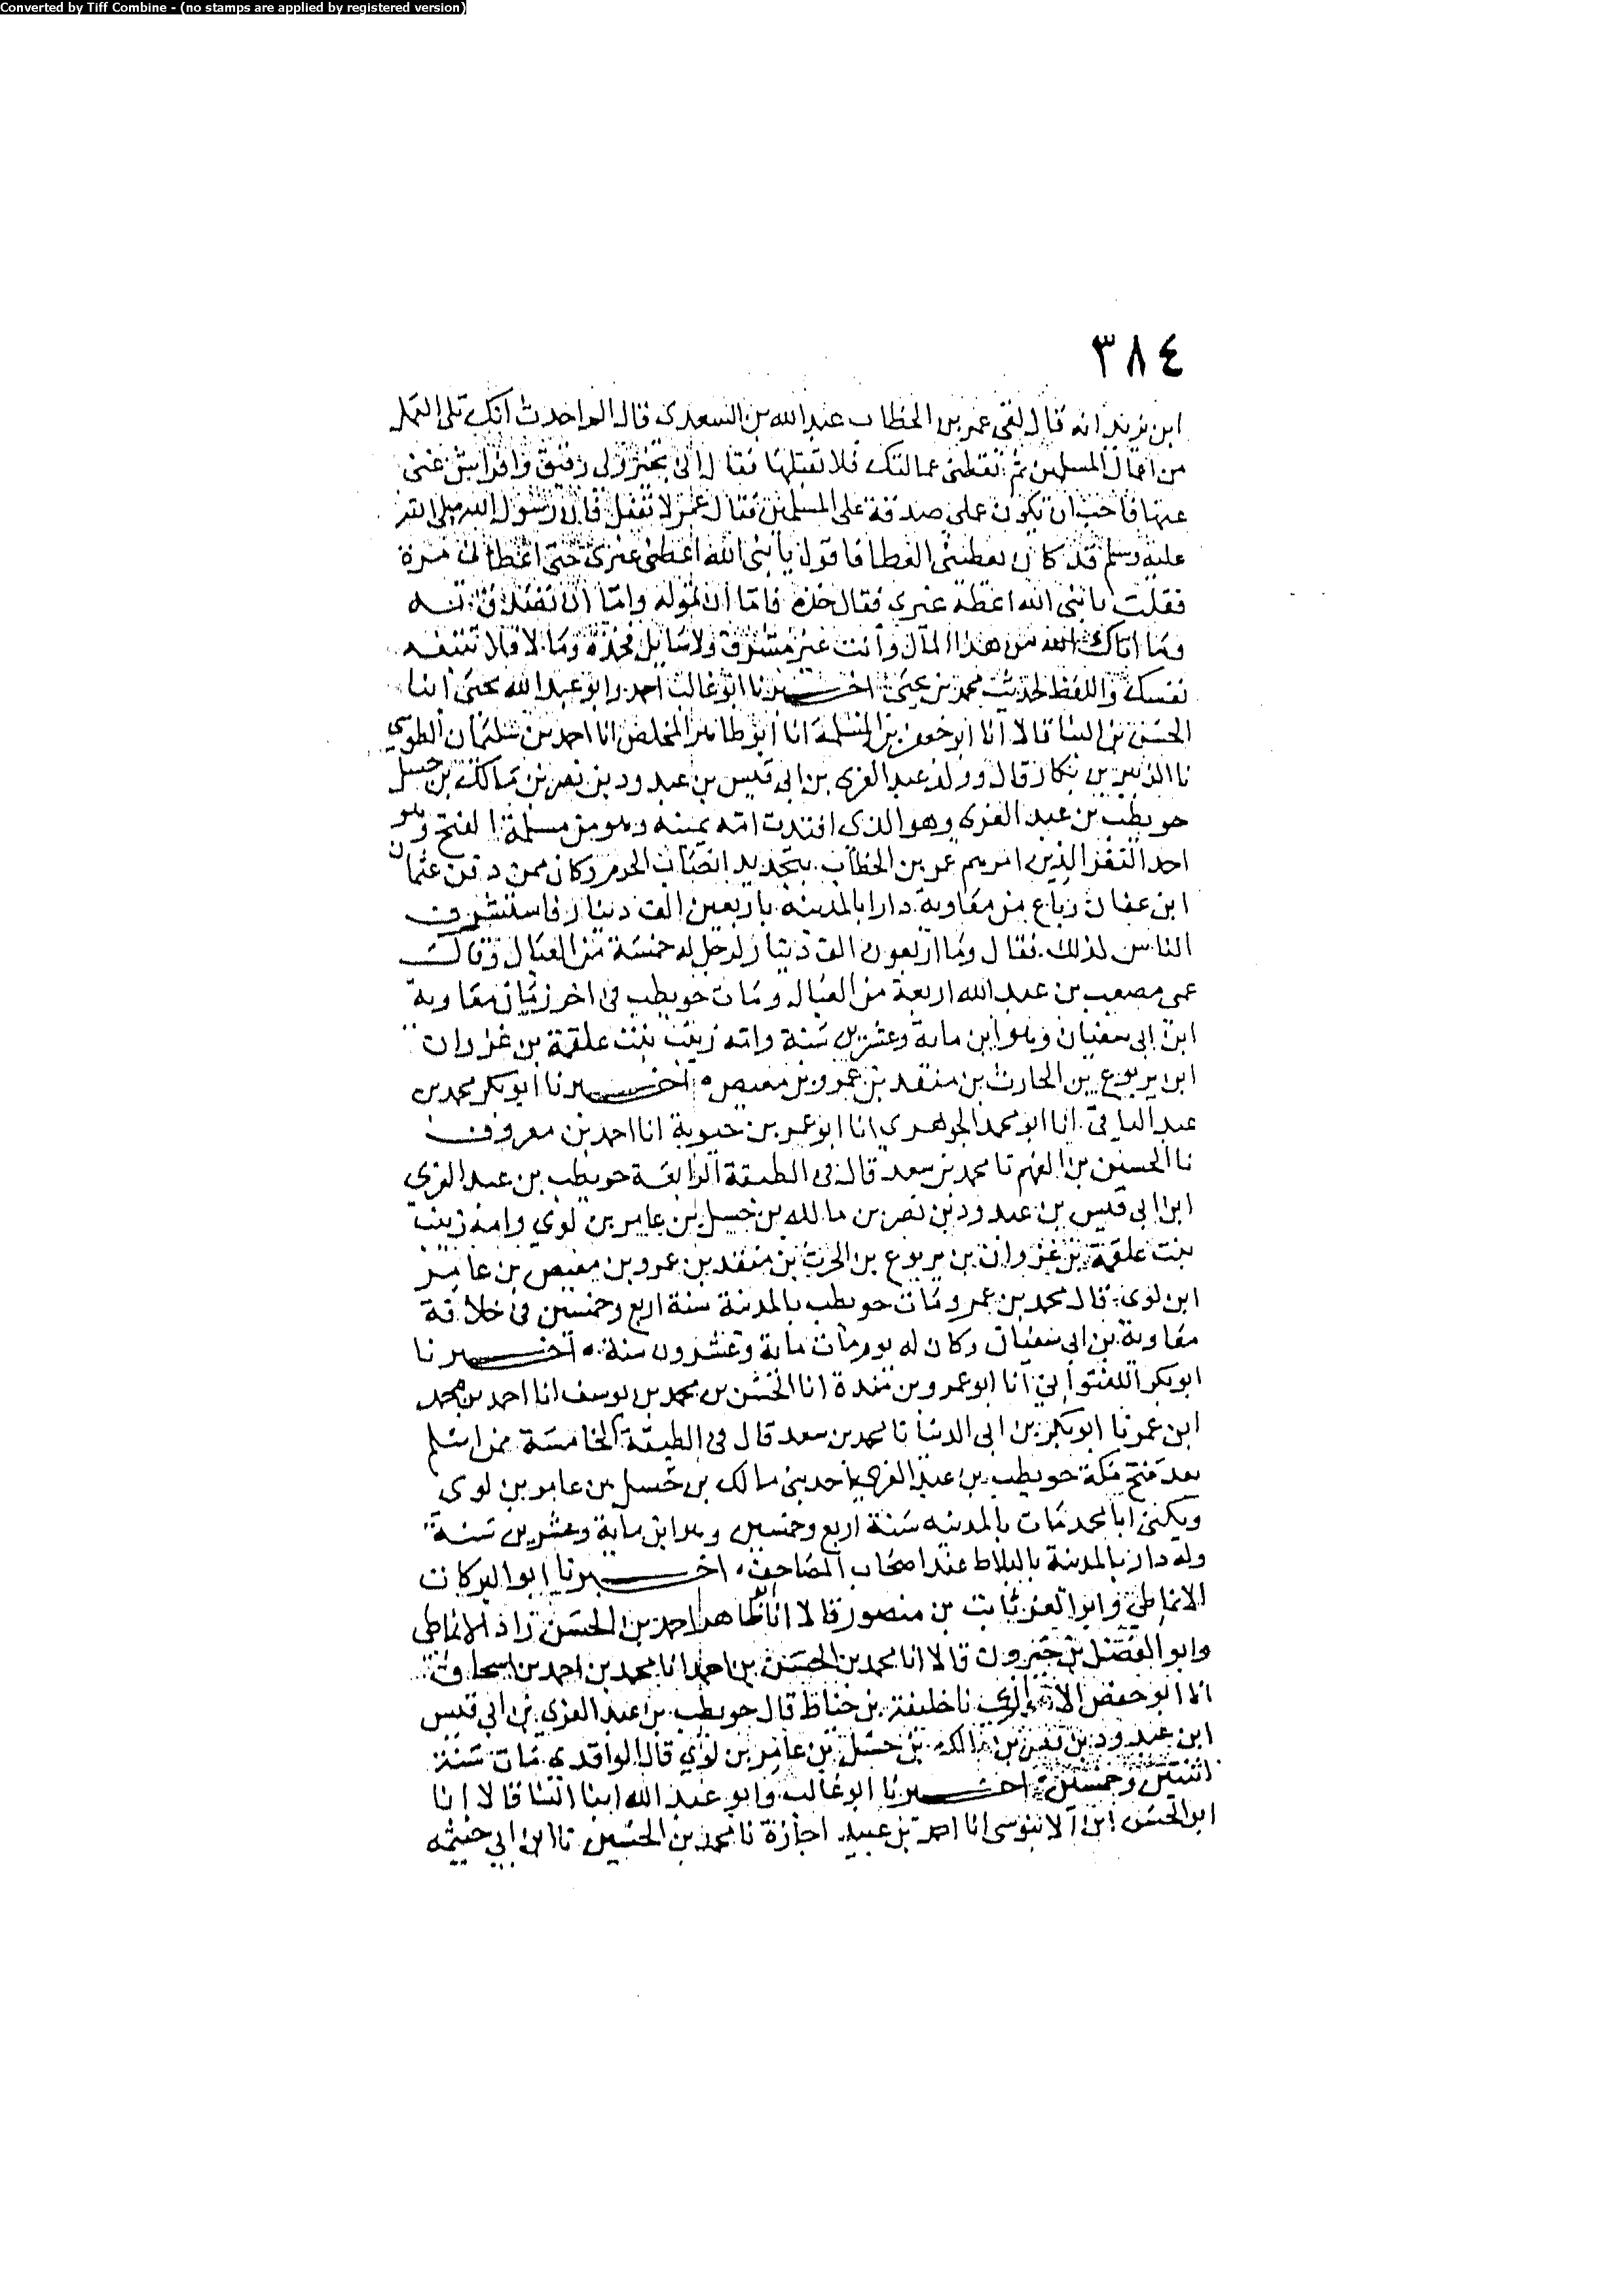 Converted by Tiff Combine - (no stamps are applied by registered version)
٣٨٤
ابن يزيد انه قال لقى عمر بن الخطاب عبد الله بن السعدى قال الم احدث انك تلى العمل
من اعمال المسلمين ثم تعطى عمالتك فلا تقبلها فقال انى بخير ولى رقيق وافراس غنى
عنها فاحب ان تكون على صدقة على المسلمين فقال عمر لا تفعل فان رسول الله صلى الله
عليه وسلم قد كان يعطينى العطا فاقول يا نبى الله اعطى غيرى حتى اعطانى مرة
فقلت يا نبى الله اعطه غيرى فقال خذه فاما ان تموله واما ان تصدق به
وما اتاك الله من هذا المال وأنت غير مشرف ولا سايل فخذه وما لا فلا تتبعه
نفسك واللفظ لحديث محمد بن يحيى اخبرنا ابو غالب احمد وابو عبد الله يحيى ابنا
الحسن بن البنا قالا انا ابو جعفر بن المسلمة انا ابو طاهر المخلص انا احمد بن سليمان الطوسي
نا الزبير بن بكار قال وولد عبد العزى بن ابى قيس بن عبد ود بن نصر بن مالك بن حسل
حويطب بن عبد العزى وهو الذى افتدت امه يمينه وهو من مسلمة الفتح وهو
احد النفر الذين امرهم عمر بن الخطاب بتجديد انصاب الحرم وكان ممن دفن عثمان
ابن عفان وباع من معاوية دارا بالمدينه باربعين الف دينار فاستشرف
الناس لذلك فقال وما اربعون الف دينار لرجل له خمسة من العيال وقال
عمى مصعب بن عبد الله اربعة من العيال ومات حويطب فى اخر زمان معاوية
ابن ابى سفيان وهو ابن ماية وعشرين سنة وامه زينب بنت علقمة بن غزوان
ابن يربوع بن الحارث بن منقذ بن عمرو بن معيص ٥ اخبرنا ابو بكر محمد بن
عبد الباقى انا ابو محمد الجوهرى انا ابو عمر بن حيوية انا احمد بن معروف
نا الحسين بن الفهم نا محمد بن سعد قال فى الطبقة الرابعة حويطب بن عبد العزي
ابن ابى قيس بن عبد ود بن نصر بن مالك بن حسل بن عامر بن لوي وامه زينب
بنت علقمة بن غزوان بن يربوع بن الحرث بن منقذ بن عمرو بن معيص بن عامر
ابن لوى قال محمد بن عمر ومات حويطب بالمدينة سنة اربع وخمسين فى خلافة
معاوية بن ابى سفيان وكان له يوم مات ماية وعشرون سنة ٥ اخبرنا
ابو بكر اللفتواني انا ابو عمرو بن مندة انا الحسن بن محمد بن يوسف انا احمد بن محمد
ابن عمر نا ابو بكر بن ابى الدنيا نا محمد بن سعد قال فى الطبقة الخامسة ممن اسلم
بعد فتح مكة حويطب بن عبد العزى احد بنى مالك بن حسل بن عامر بن لوى
ويكنى ابا محمد مات بالمدينه سنة اربع وخمسين وهو ابن ماية وعشرين سنة
وله دار بالمدينة بالبلاط عند اصحاب المصاحف ٥ اخبرنا ابو البركات
الانماطي وابو العز ثابت بن منصور قالا انا ابو طاهر احمد بن الحسن زاد الانماطى
وابو الفضل بن خيرون قالا انا محمد بن الحسن بن احمد انا محمد بن احمد بن اسحاق
انا ابو حفص الاهوازي نا خليفة بن خياط قال حويطب بن عبد العزي بن ابي قيس
ابن عبد ود بن نصر بن مالك بن حسل بن عامر بن لؤي قال الواقدى مات سنة
اثنتين وخمسين اخبرنا ابو غالب وابو عبد الله ابنا البنا قالا انا
ابو الحسن ابن الابنوسى انا احمد بن عبيد اجازة نا محمد بن الحسين نا ابن ابي خيثمه